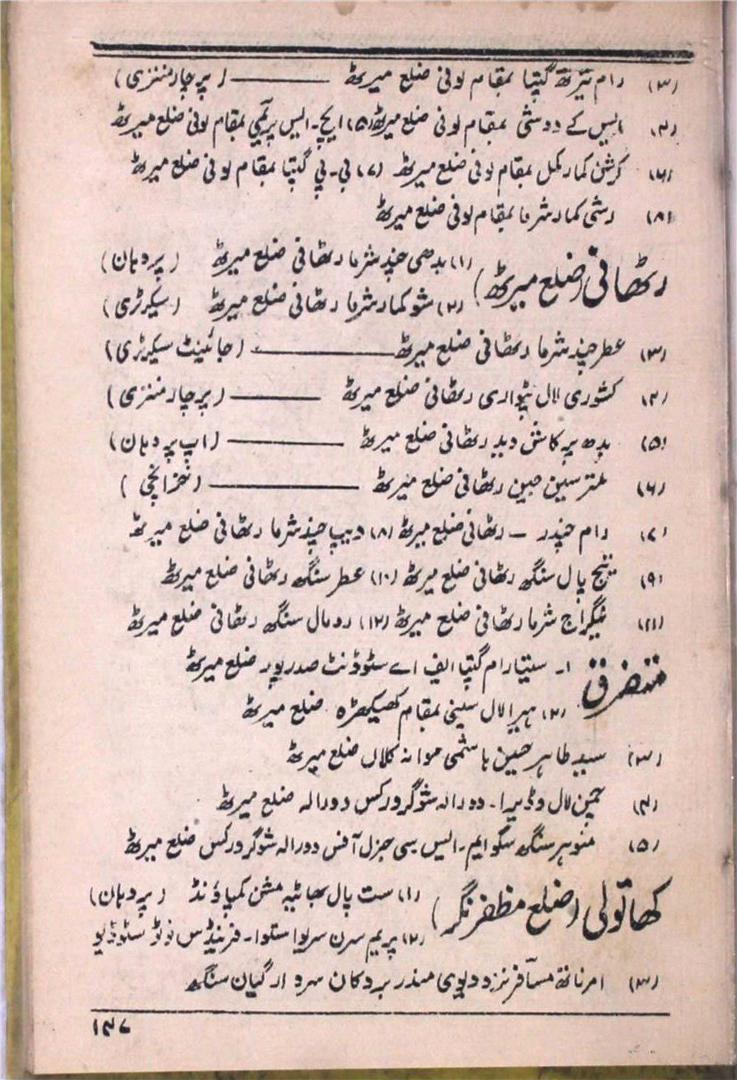 (۳) رام تیرتھ گپتا بمقام لونی ضلع میرٹھ ——— (پرچار منتری)
(۴) ایس کے دوشی بمقام لونی ضلع میرٹھ (۵) ایچ۔ ایس پریمی بمقام لونی ضلع میرٹھ
(۶) کرشن کمار بمقام لونی ضلع میرٹھ (۷) بی۔ پی گپتا بمقام لونی ضلع میرٹھ
(۸) رشی کمار شرما بمقام لونی ضلع میرٹھ
رٹھانی (ضلع میرٹھ) (۱) بدھی چند شرما رٹھانی ضلع میرٹھ (پردہان)
(۲) شو کمار شرما رٹھانی ضلع میرٹھ (سیکرٹری)
(۳) عطر چند شرما رٹھانی ضلع میرٹھ ——— (جائینٹ سیکرٹری)
(۴) کشوری لال پٹواری رٹھانی ضلع میرٹھ ——— (پرچار منتری)
(۵) بدھ پرکاش دید رٹھانی ضلع میرٹھ ——— (اپ پردہان)
(۶) متر سین جین رٹھانی ضلع میرٹھ ——— (خزانچی)
(۷) رام چندر — رٹھانی ضلع میرٹھ (۸) دیپ چند شرما رٹھانی ضلع میرٹھ
(۹) پال سنگھ رٹھانی ضلع میرٹھ (۱۰) عطر سنگھ رٹھانی ضلع میرٹھ
(۱۱) شرما رٹھانی ضلع میرٹھ (۱۲) رومال سنگھ رٹھانی ضلع میرٹھ
متفرق ۱۔ ستیا رام گپتا ایف اے سٹوڈنٹ صدرپور ضلع میرٹھ
(۲) ہیرا لال سینی بمقام کھیکھڑہ ضلع میرٹھ
(۳) سید طاہر حسین ہاشمی موانہ کلاں ضلع میرٹھ
(۴) چمن لال وڈیرا۔ دورالہ شوگر ورکس دورالہ ضلع میرٹھ
(۵) منوہر سنگھ سگو ایم۔ ایس سی جنرل آفس دورالہ شوگر ورکس ضلع میرٹھ
کھاتولی (ضلع مظفر نگر) (۱) ست پال بھاٹیہ مشن کمپاؤنڈ (پردہان)
(۲) پریم سرن سریواستوا۔ فرینڈس فوٹو سٹوڈیو
(۳) امرناتھ مسافر نزد دیوی مندر بر دکان سردار گیان سنگھ
۱۴۷